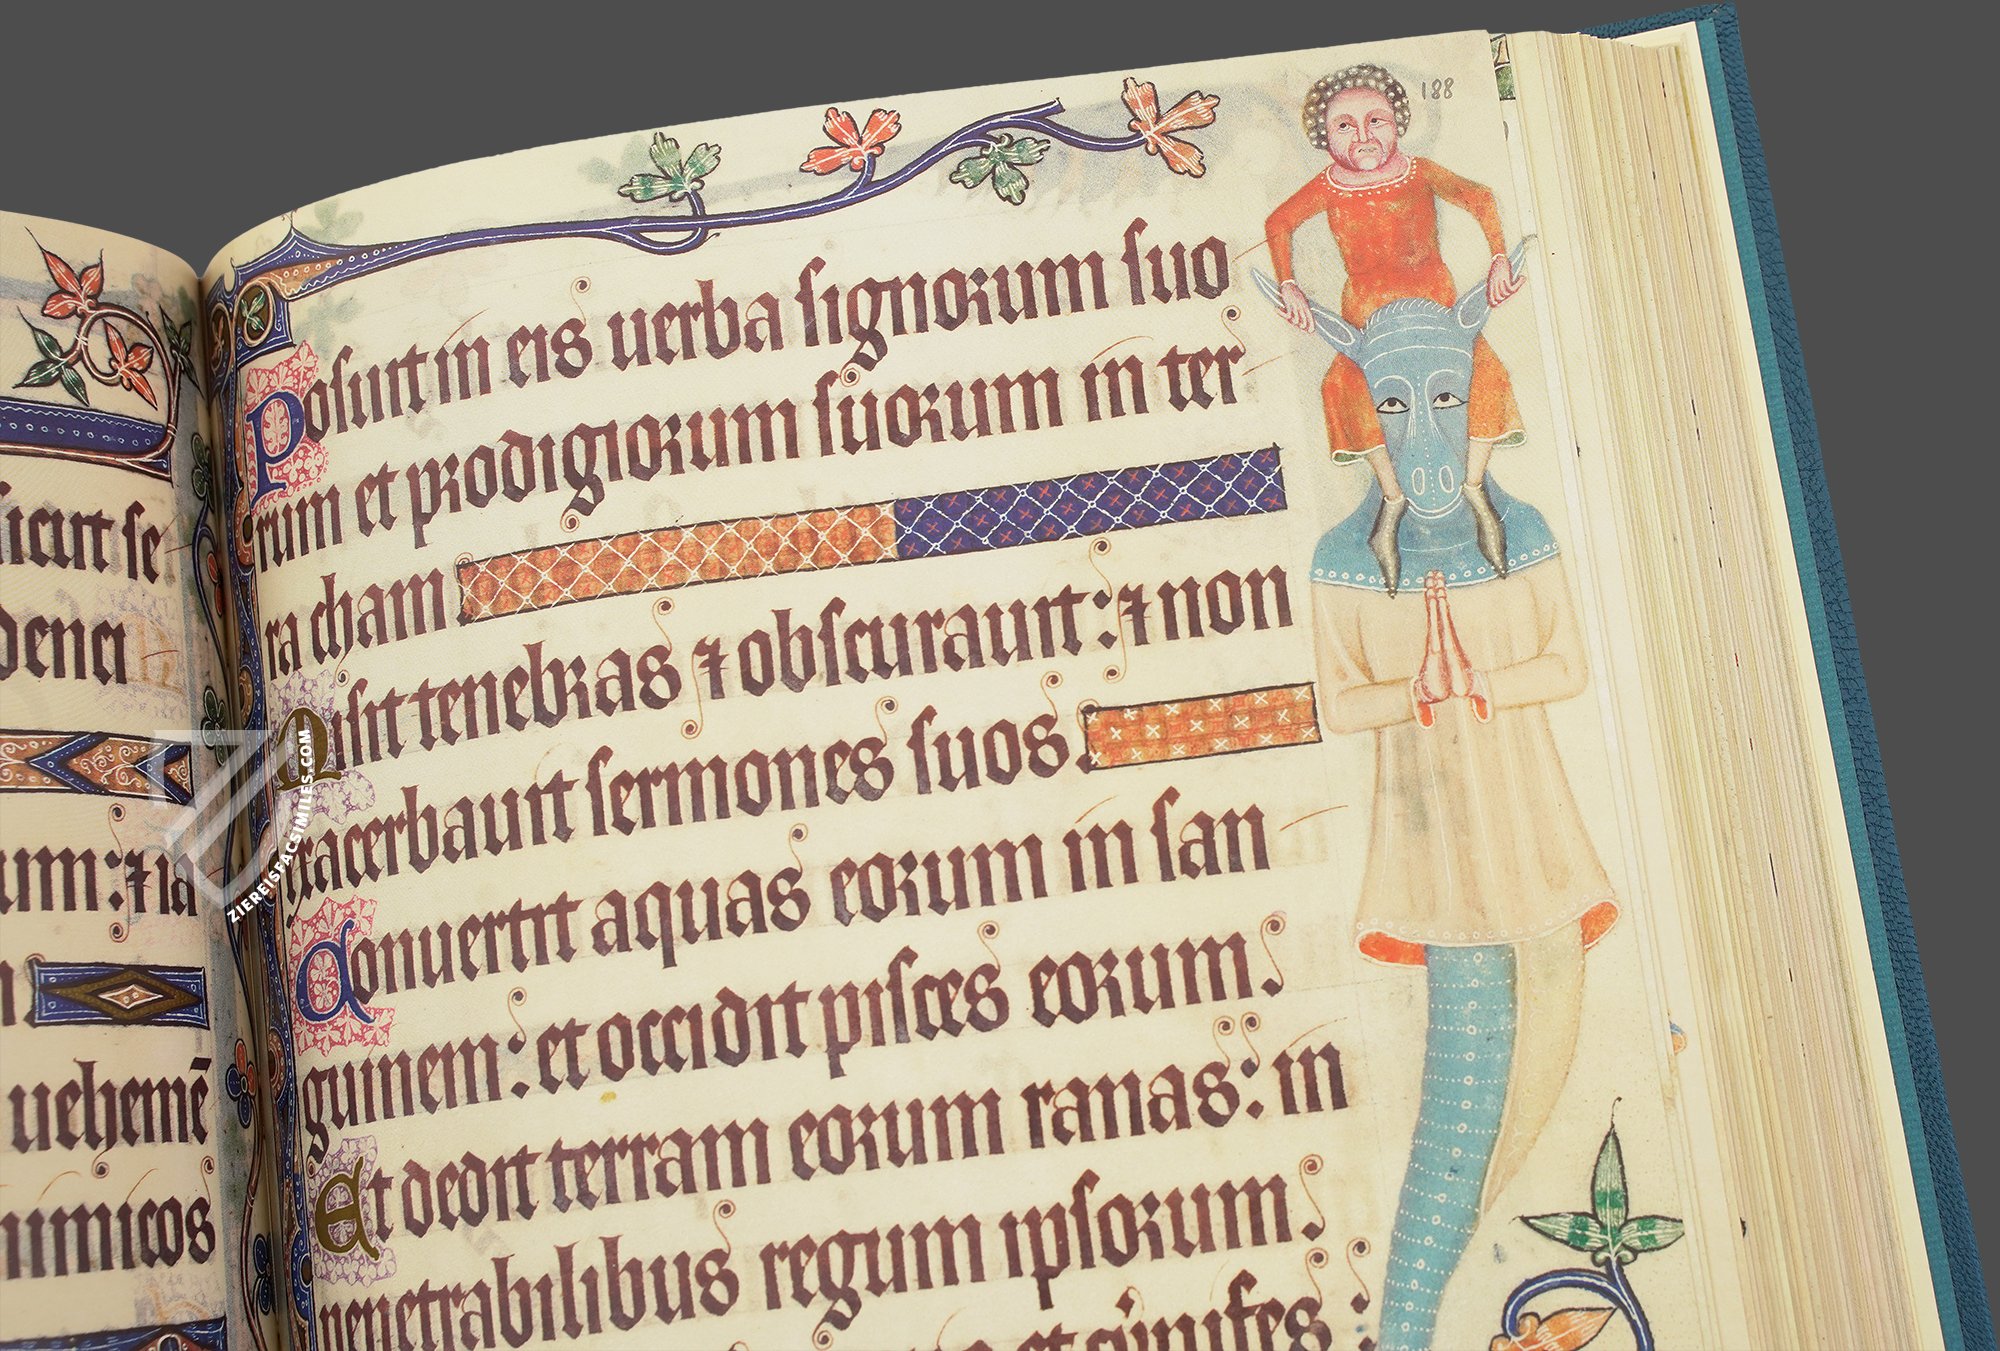 icut se
denci
um: ⁊ la
uehemē
inimicos
188
Posuit in eis uerba signorum suo
rum et prodigiorum suorum in ter
ra cham
Misit tenebras ⁊ obscurauit: ⁊ non
exacerbauit sermones suos.
Conuertit aquas eorum in san
guinem: et occidit pisces eorum.
Et dedit terram eorum ranas: in
penetrabilibus regum ipsorum.
et cinifes:
ZIEREISFACSIMILES.COM